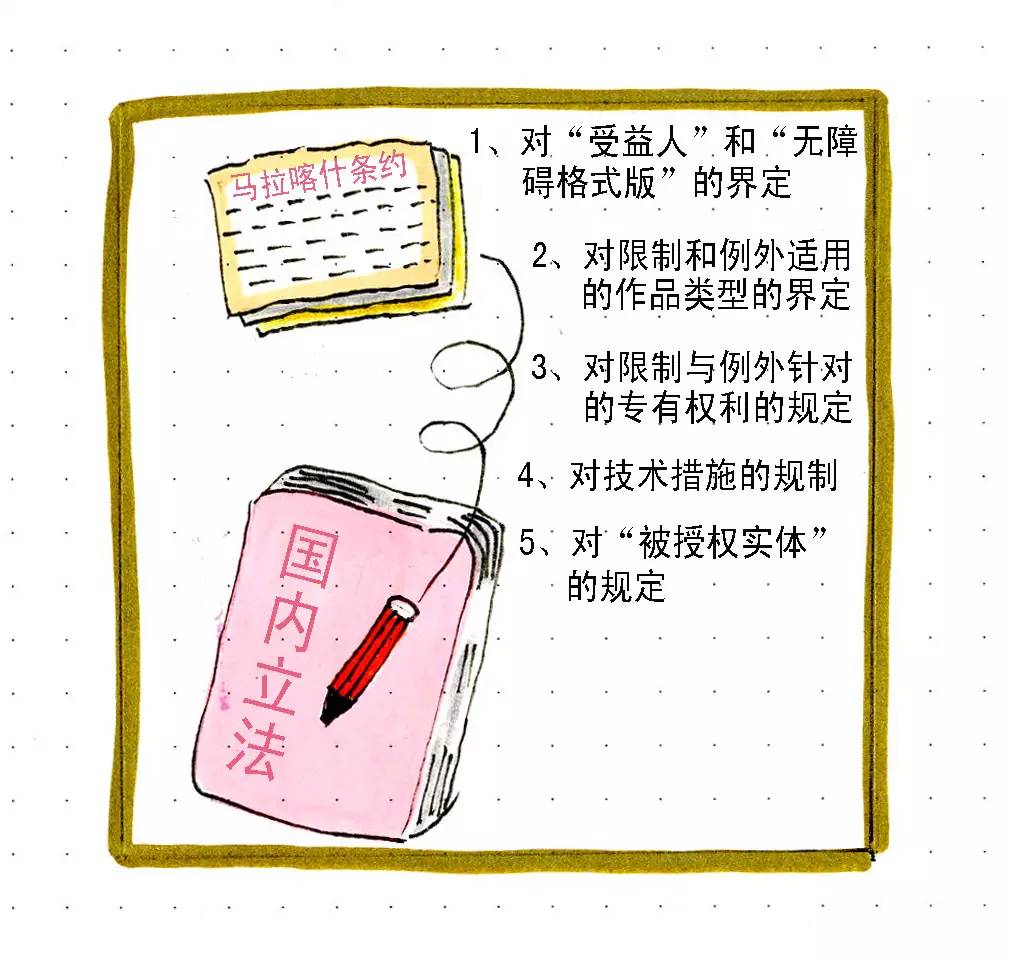 马拉喀什条约
1、对“受益人”和“无障
碍格式版”的界定
2、对限制和例外适用
的作品类型的界定
3、对限制与例外针对
的专有权利的规定
4、对技术措施的规制
5、对“被授权实体”
的规定
国内立法